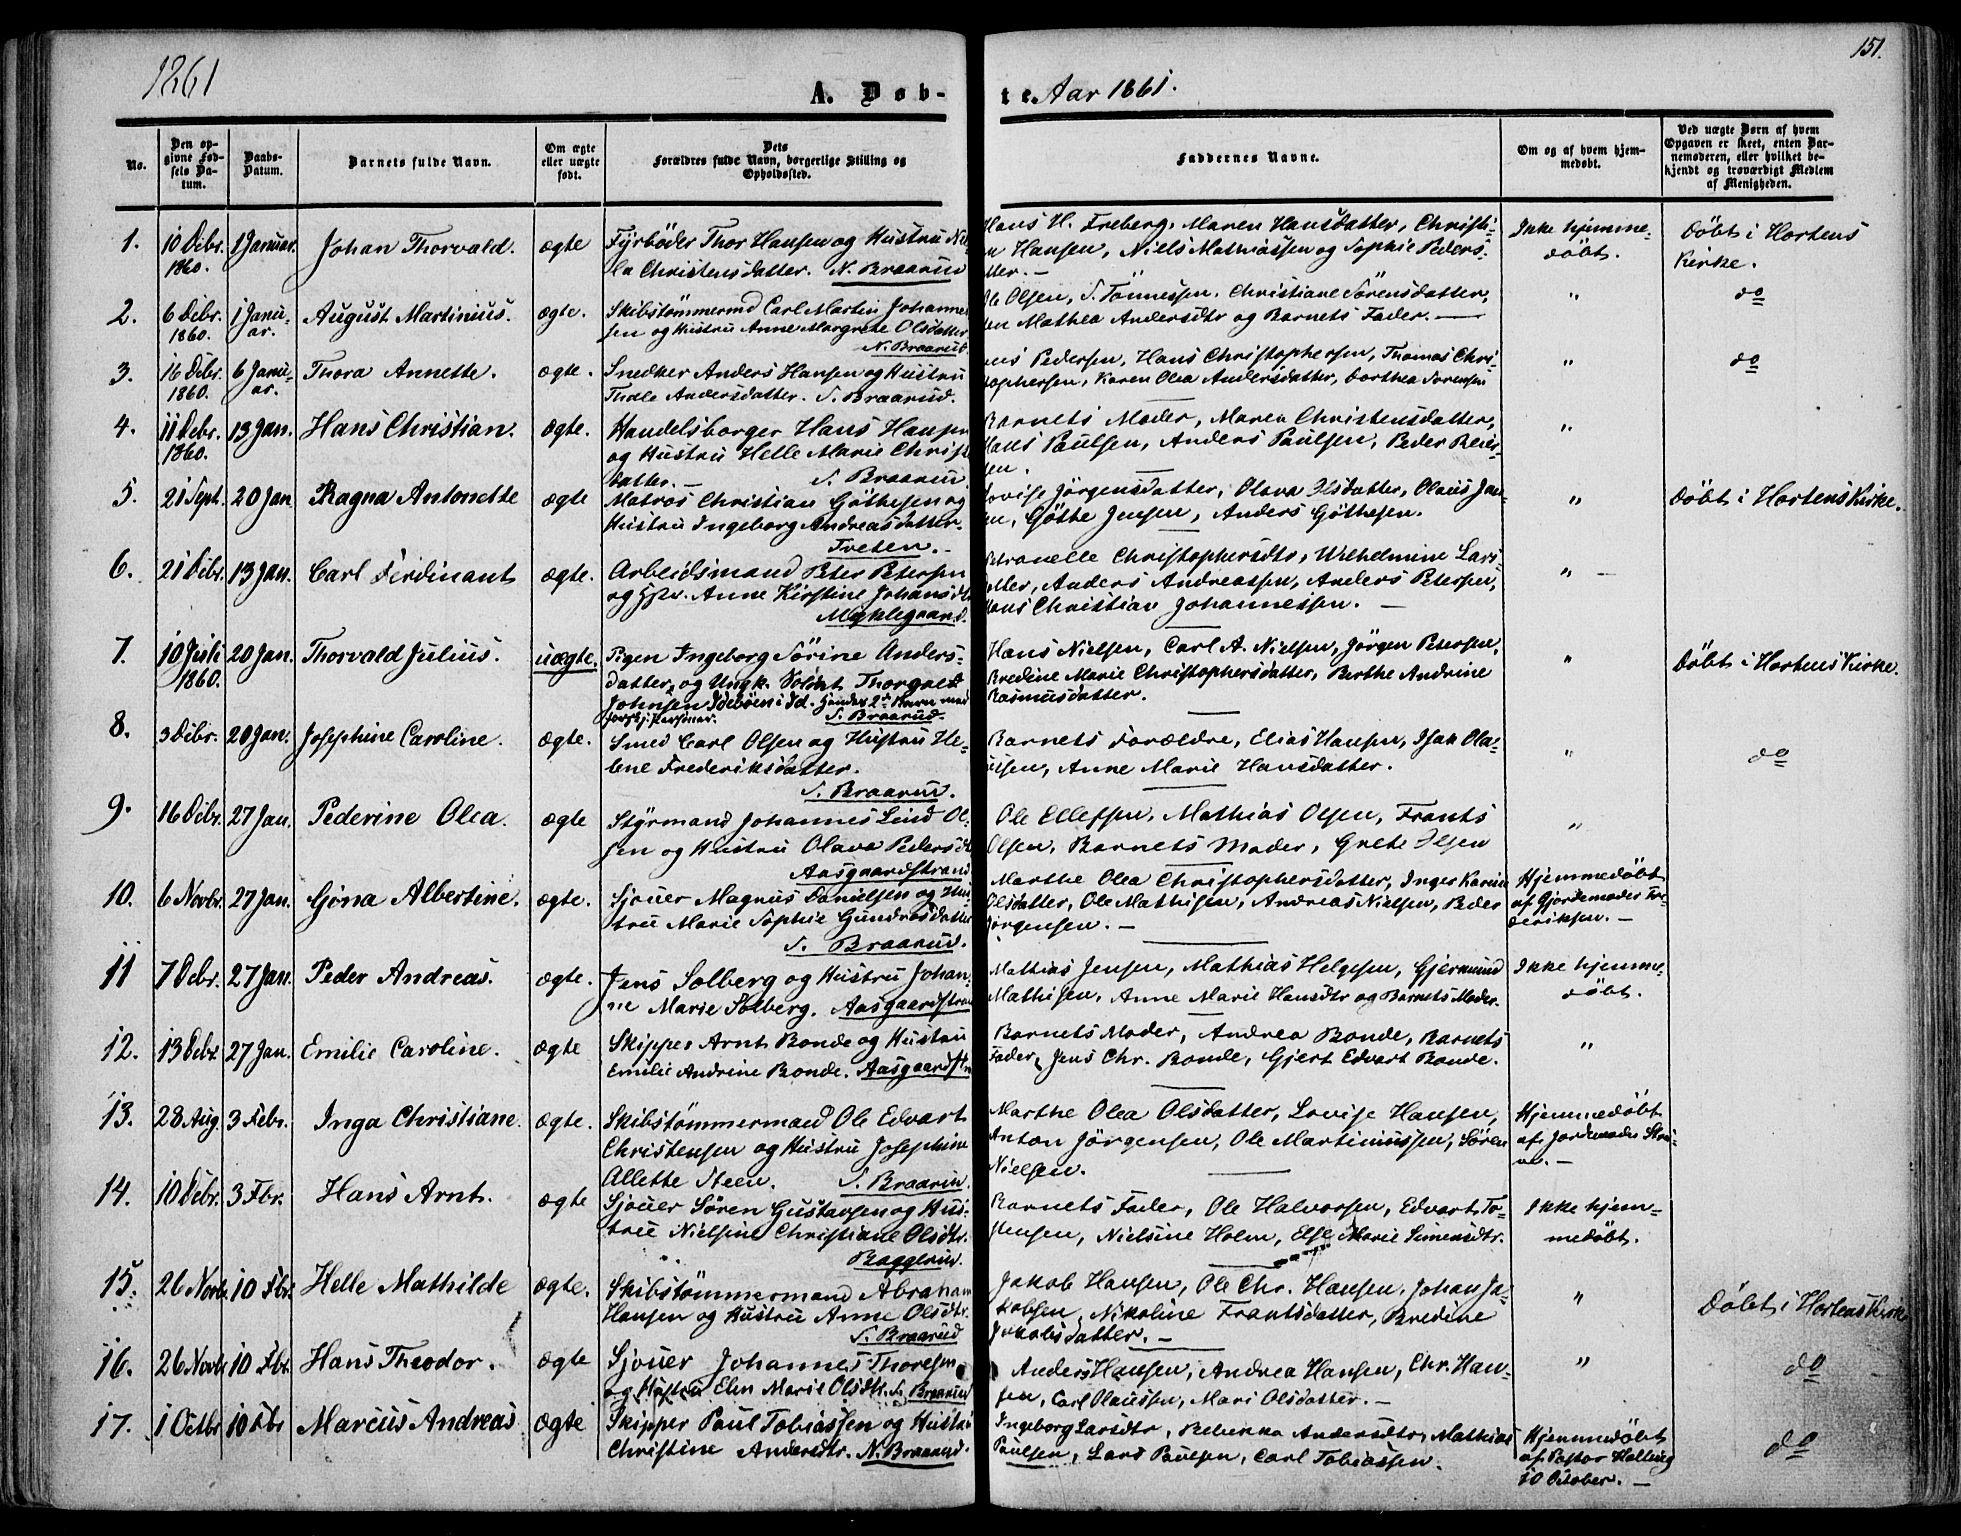 1861
151.
A. Døb-
te. Aar 1861.
No.
Den op-
givne Fød-
sels Da-
tum.
Daabs-
Datum.
Barnets fulde Navn.
Om ægte
eller uægte
født.
Dets
Forældres fulde Navn, borgerlige Stilling og
Opholdssted.
Faddernes Navne.
Om og af hvem hjem-
medøbt.
Ved uægte Børn af hvem
Opgaven er skeet, enten Bar-
nemoderen, eller hvilket be-
kjendt og troværdigt Medlem
af Menigheden.
1. 10 Debr. 1860. 1 Januar. Johan Thorvald. ægte
Fyrbøder Thor Hansen og Hustru Nil-
la Christensdatter. N. Braarud
Hans H. Freberg, Maren Hansdatter, Christi-
n Hansen, Niels Mathiassen og Sophie Peders-
tter. —
Ikke hjemme-
døbt.
Døbt i Hortens
Kirke.
2. 6 Debr. 1860. 1 Janu-
ar. August Martinius. ægte.
Skibstømmermd Carl Martin Johannes
sen og Hustru Anne Margrete Olsdatter
N. Braarud.
Ole Olsen, S. Tönnessen, Christiane Sörensdatter,
en Mathea Andersdtr og Barnets Fader. —
"
do
3. 16 Debr. 1860. 6 Janu-
ar. Thora Annette. ægte.
Snedker Anders Hansen og Hustru
Thale Andersdatter. S. Braarud.
Pedersen, Hans Christophersen, Thomas Chri-
stophersen, Karen Olea Andersdatter, Dorthea Sorensen
"
do
4. 11 Debr. 1860. 13 Jan. Hans Christian. ægte.
Handelsborger Hans Hansen
og Hustru Helle Marie Christ
datter. — S. Braarud
Barnets Moder, Maren Christensdatter,
Hans Paulsen, Anders Paulsen, Peder
sen.
"
5. 21 Sept. 20 Jan Ragna Antonette ægte
Matros Christian Göthesen og
Hustru Ingeborg Andreasdatter.
Tveten.
Lovise Jörgensdatter, Olava Olsdatter, Olaus Jan-
en, Göthe Jensen, Anders Göthesen.
"
Döbt i Hortens Kirke.
6. 21 Debr. 13 Jan. Carl Ferdinant ægte.
Arbeidsmand Peter Petersen
og Hstr. Anne Kirstine Johansdt
Myklegaard.
Petronelle Christophersdtr, Wilhelmine Lars-
datter, Anders Andreassen, Anders Petersen,
Hans Christian Johannessen. —
"
7. 10 Juli 1860. 20 Jan. Thorvald Julius. uægte.
Pigen Ingeborg Sörine Anders-
datter, og Ungk. Soldat Thorvald
Johnsen Idebøen i Id. Hendes 2det Barn med
forskj. Personer. S. Braarud.
Hans Nielsen, Carl A. Nielsen, Jörgen Petersen,
Bredine Marie Christophersdatter, Berthe Andrine
Rasmusdatter.
"
Döbt i Hortens Kirke.
8. 3 Debr. 20 Jan. Josephine Caroline. ægte.
Smed Carl Olsen og Hustru He-
lene Frederiksdatter.
S. Braarud.
Barnets Forældre, Elias Hansen, Isak Ola-
usen, Anne Marie Hansdatter.
"
do
9. 16 Debr. 27 Jan. Pederine Olea. ægte
Styrmand Johannes Lind Ol-
sen og Hustru Olava Pedersdt
Aasgaardstrand
Ole Ellefsen, Mathias Olsen, Frants
Olsen, Barnets Moder, Grete Olsen
"
10. 6 Novbr. 27 Jan. Gjöna Albertine. ægte.
Sjouer Magnus Danielsen og Hu-
stru Marie Sophie Gundersdatter
S. Braarud.
Marthe Olea Christophersdatter, Inger Karine
Olsdatter, Ole Mathisen, Andreas Nielsen, Peder
Jörgensen. —
Hjemmedøbt
af Gjordemoder Fre-
deriksen. —
11 7 Debr. 27 Jan. Peder Andreas. ægte.
Jens Solberg og Hustru Johan-
ne Marie Solberg. Aasgaardstran
Mathias Jensen, Mathias Helgesen, Gjermund
Mathisen, Anne Marie Hansdtr og Barnets Moder.
Ikke hjemme-
døbt.
12. 13 Debr. 27 Jan. Emilie Caroline. ægte
Skipper Arnt Bonde og Hustru
Emilie Andrine Bonde. Aasgaardstr
Barnets Moder, Andrea Bonde, Barnets
Fader, Jens Chr. Bonde, Gjert Edvart Bonde.
"
13. 28 Aug. 3 Febr. Inga Christiane. ægte.
Skibstömmermand Ole Edvart
Christensen og Hustru Josephine
Allette Steen. S. Braarud.
Marthe Olea Olsdatter, Lovise Hansen,
Anton Jörgensen, Ole Martiniussen, Sören
Nielsen.
Hjemmedøbt
af Jordemoder
14. 10 Debr. 3 Fbr. Hans Arnt. ægte
Sjouer Sören Gustavsen og Hus-
tru Nielsine Christiane Olsdtr.
Baggerud.
Barnets Fader, Ole Halvorsen, Edvart To-
Jensen, Nielsine Holm, Else Marie Simensdtr.
Ikke hjem-
medøbt.
15. 26 Novbr. 10 Fbr. Helle Mathilde ægte.
Skibstömmermand Abraham
Hansen og Hustru Anne Olsdtr.
S. Braarud
Jakob Hansen, Ole Chr. Hansen, Johan Ja-
kobsen, Nikoline Frantsdatter, Bredine
Jakobsdatter. —
"
Döbt i Hortens Kirke
16. 26 Novbr 10 Fbr. Hans Theodor. ægte
Sjouer Johannes Thoresen
og Hustru Elen Marie Olsdtr. S. Braarud
Anders Hansen, Andrea Hansen, Chr. Han-
sen, Carl Olaussen, Mari Olsdatter. —
"
do
17. 1 Octbr 10 Fbr Marcus Andreas ægte
Skipper Paul Tobiassen og Hustru
Christine Andersdtr. N. Braarud.
Ingeborg Larsdtr, Rebekka Andersdtr, Mathias
Paulsen, Lars Paulsen, Carl Tobiassen.
Hjemmedøbt
af Pastor
10 October. —
do